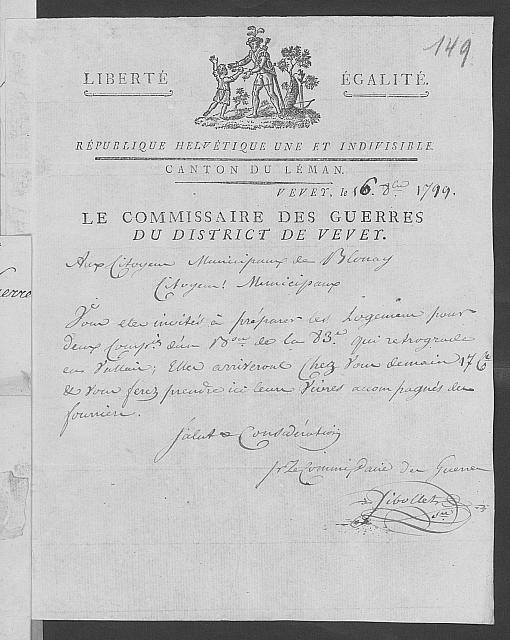 149
LIBERTÉ ÉGALITÉ.
RÉPUBLIQUE HELVÉTIQUE UNE ET INDIVISIBLE.
CANTON DU LÉMAN.
VEVEY, le 16. 8bre 1799.
LE COMMISSAIRE DES GUERRES
DU DISTRICT DE VEVEY.
Aux Citoyens Municipaux de Blonay
Citoyens Municipaux
Vous etes invités à préparer les Logemens pour
deux Comp.es d'un B.on de la 83.e qui retrograde
en Vallais; Elles arriveront chez Vous demain 17 Ct
& Vous ferez prendre ici leurs Vivres accompagnés du
fourrier.
Salut & Considération
Le Commissaire des Guerres